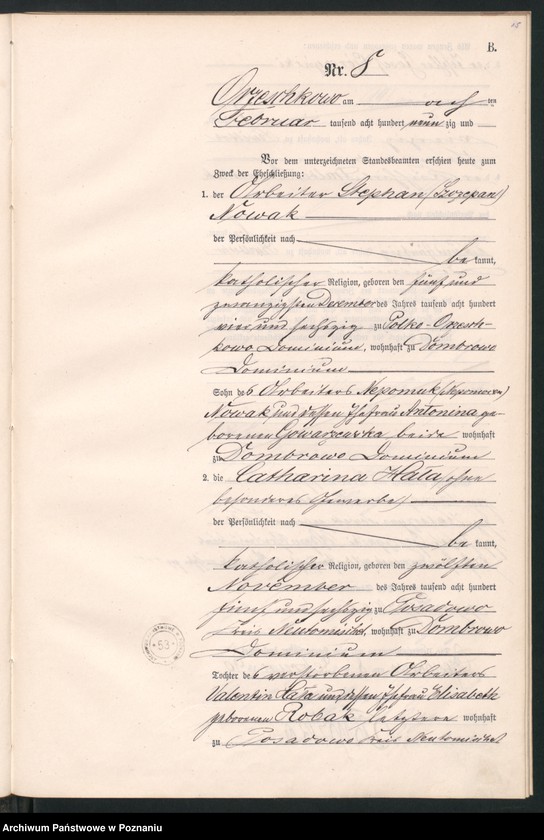 15
B.
Nr. 8
Orzeschkowo am acht ten
Februar tausend acht hundert neun zig und
Vor dem unterzeichneten Standesbeamten erschien heute zum
Zweck der Eheschließung:
1. der Arbeiter Stephan (Szczepan)
Nowak
der Persönlichkeit nach
be kannt,
katholischer Religion, geboren den fünf und
zwanzigsten Dezember des Jahres tausend acht hundert
vier und sechszig zu Polko-Orzesch-
kowo Dominium, wohnhaft zu Dombrowo
Dominium
Sohn des Arbeiters Nepomuk (Nepomucen)
Nowak und dessen Ehefrau Antonina ge-
borenen beide wohnhaft
zu Dombrowo Dominium
2. die Catharina Hała ohne
besonderes Gewerbe
der Persönlichkeit nach
be kannt,
katholischer Religion, geboren den zwölften
November des Jahres tausend acht hundert
fünf und sechszig zu Posadowo
Kreis Neutomischel, wohnhaft zu Dombrowo
Dominium
Tochter des verstorbenen Arbeiters
Valentin Hała und dessen Ehefrau Elisabeth
geborenen Robak letztere wohnhaft
zu Posadowo Kreis Neutomischel
53
Archiwum Państwowe w Poznaniu